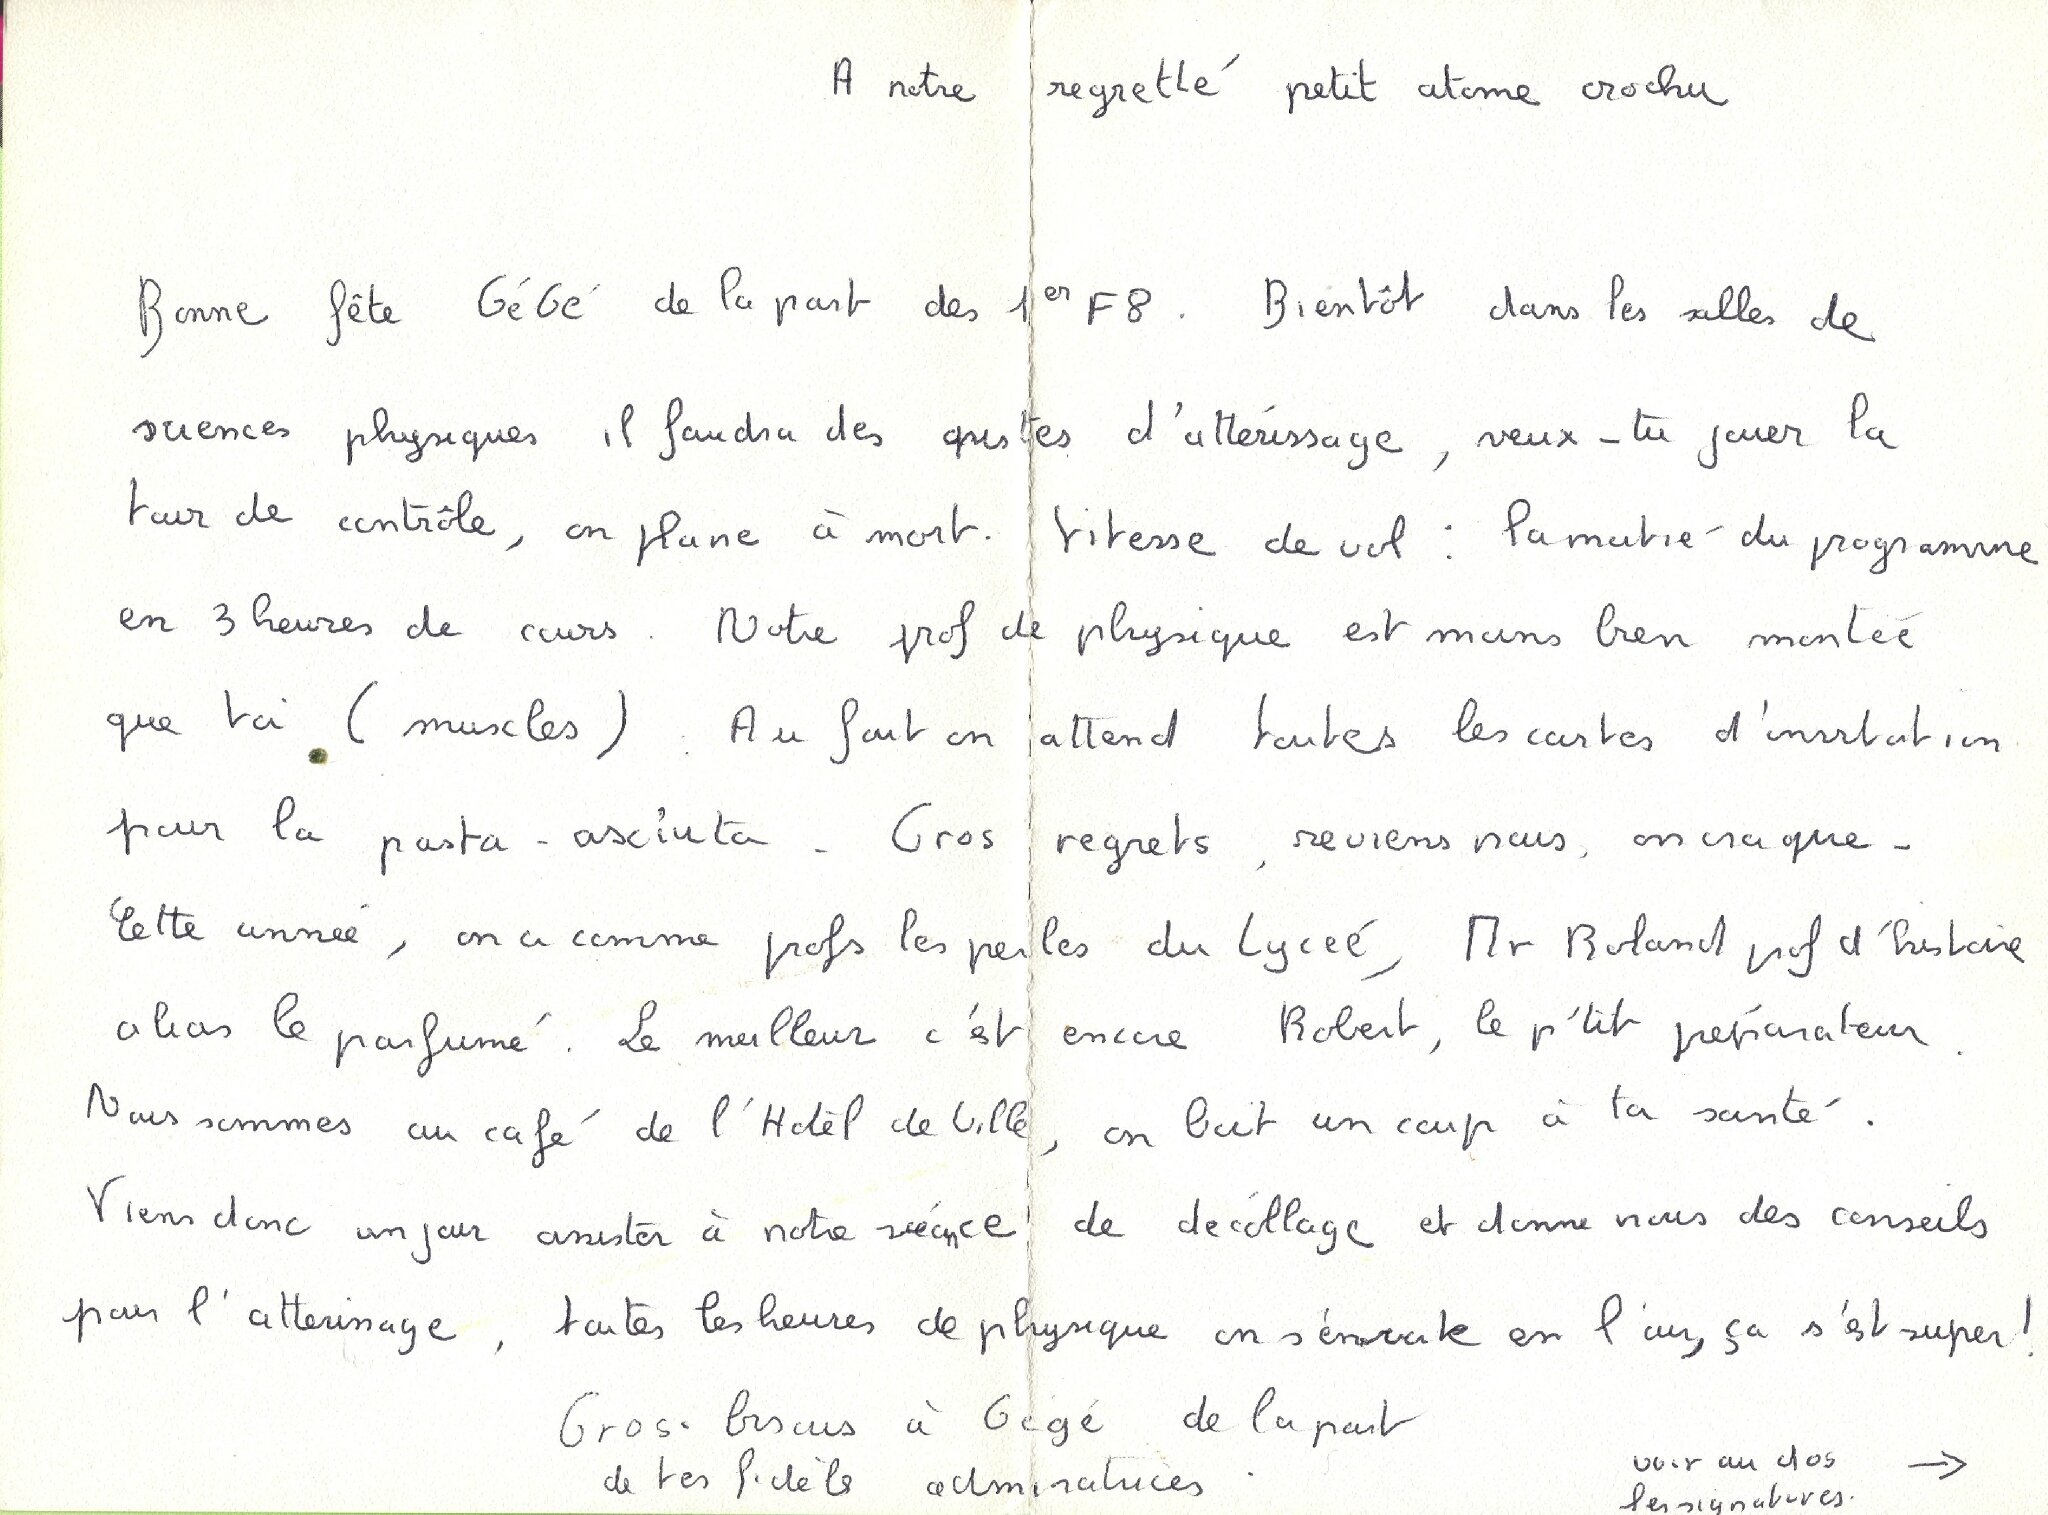 A notre regretté petit atome crochu
Bonne fête GéGé de la part des 1er F8. Bientôt dans les salles de
sciences physiques il faudra des pistes d'attérissage, veux-tu jouer la
tour de contrôle, on plane à mort. Vitesse de vol : la moitié du programme
en 3 heures de cours. Notre prof de physique est moins bien montée
que toi (muscles). Au fait on attend toutes les cartes d'invitation
pour la pasta-asciuta - Gros regrets, reviens nous, on craque -
Cette année, on a comme profs les perles du Lycée, Mr Roland prof d'histoire
alias le parfumé. Le meilleur c'est encore Robert, le p'tit préparateur.
Nous sommes au café de l'Hotel de Ville, on boit un coup à ta santé.
Viens donc un jour assister à notre séance de décollage et donne nous des conseils
pour l'atterissage, toutes les heures de physique on s'envoie en l'air, ça s'est super!
Gros bisous à Gégé de la part
de tes fidèle admiratrices.
voir au dos →
les signatures.